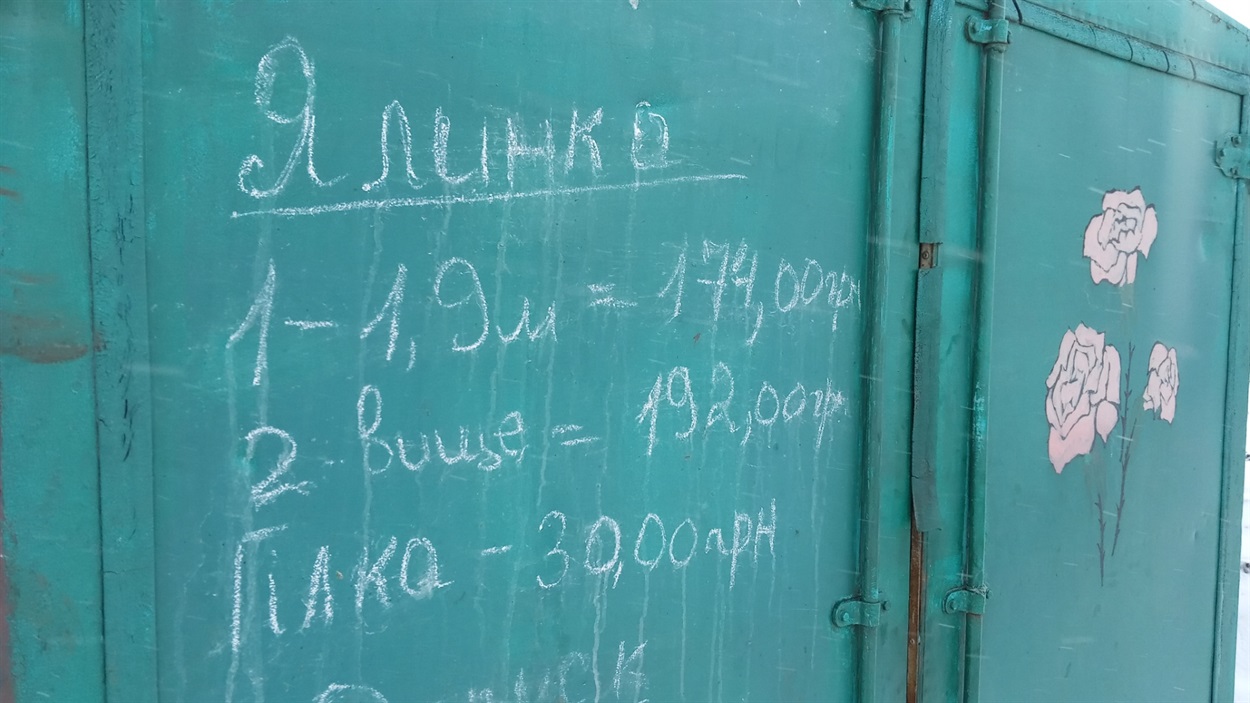 Ялинка
1 - 1,9м = 174,00гр
2 вище = 192,00гр
Гілка - 30,00грн